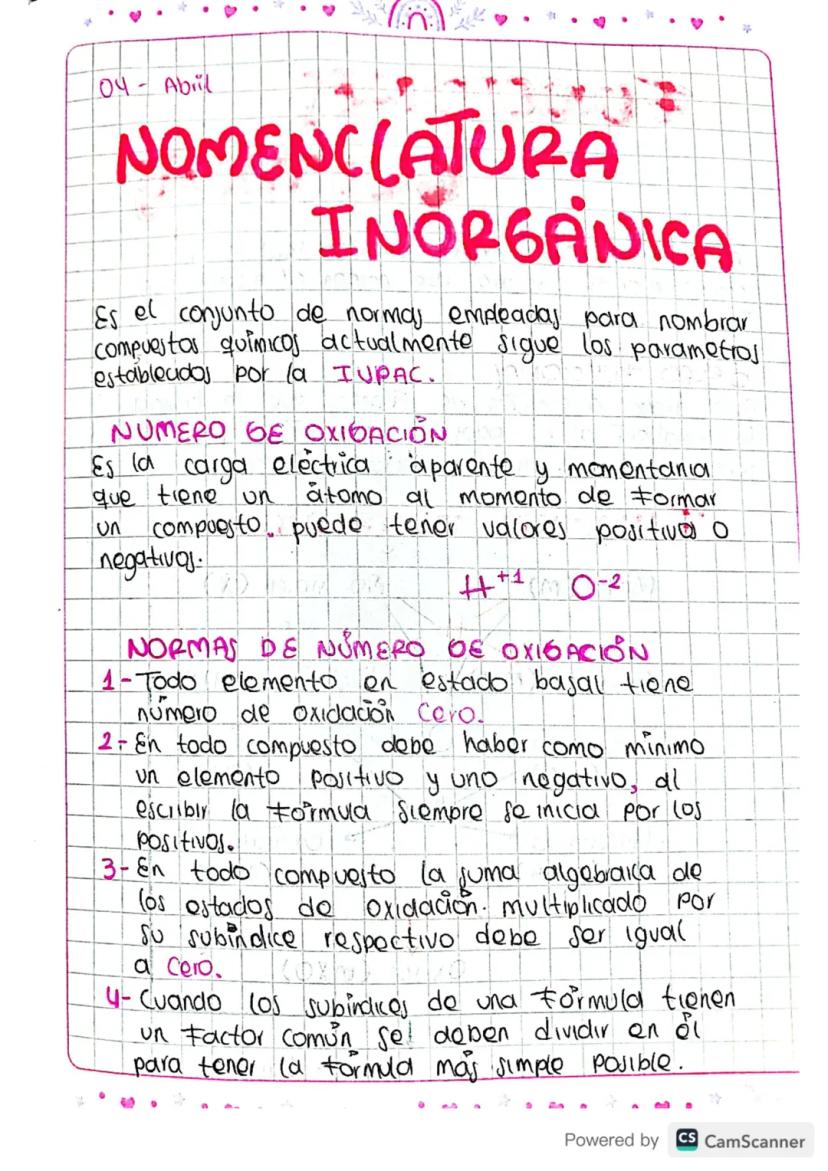 04 - Abril
NOMENCLATURA
INORGÁNICA
Es el conjunto de normas empleadas para nombrar
compuestos químicos actualmente sigue los parametros
establecidos por la IUPAC.
NUMERO DE OXIDACIÓN
Es la carga eléctrica aparente y momentania
que tiene un átomo al momento de formar
un compuesto. puede tener valores positivo o
negativos.
H+1 O-2
NORMAS DE NÚMERO DE OXIDACIÓN
1- Todo elemento en estado basal tiene
número de oxidación Cero.
2- En todo compuesto debe haber como mínimo
un elemento positivo y uno negativo, al
escribir la fórmula siempre se inicia por los
positivos.
3- En todo compuesto la suma algebraica de
los estados de oxidación multiplicado por
su subíndice respectivo debe ser igual
a Cero.
4- Cuando los subíndices de una fórmula tienen
un factor común se deben dividir en él
para tener la fórmula más simple posible.
Powered by CS CamScanner